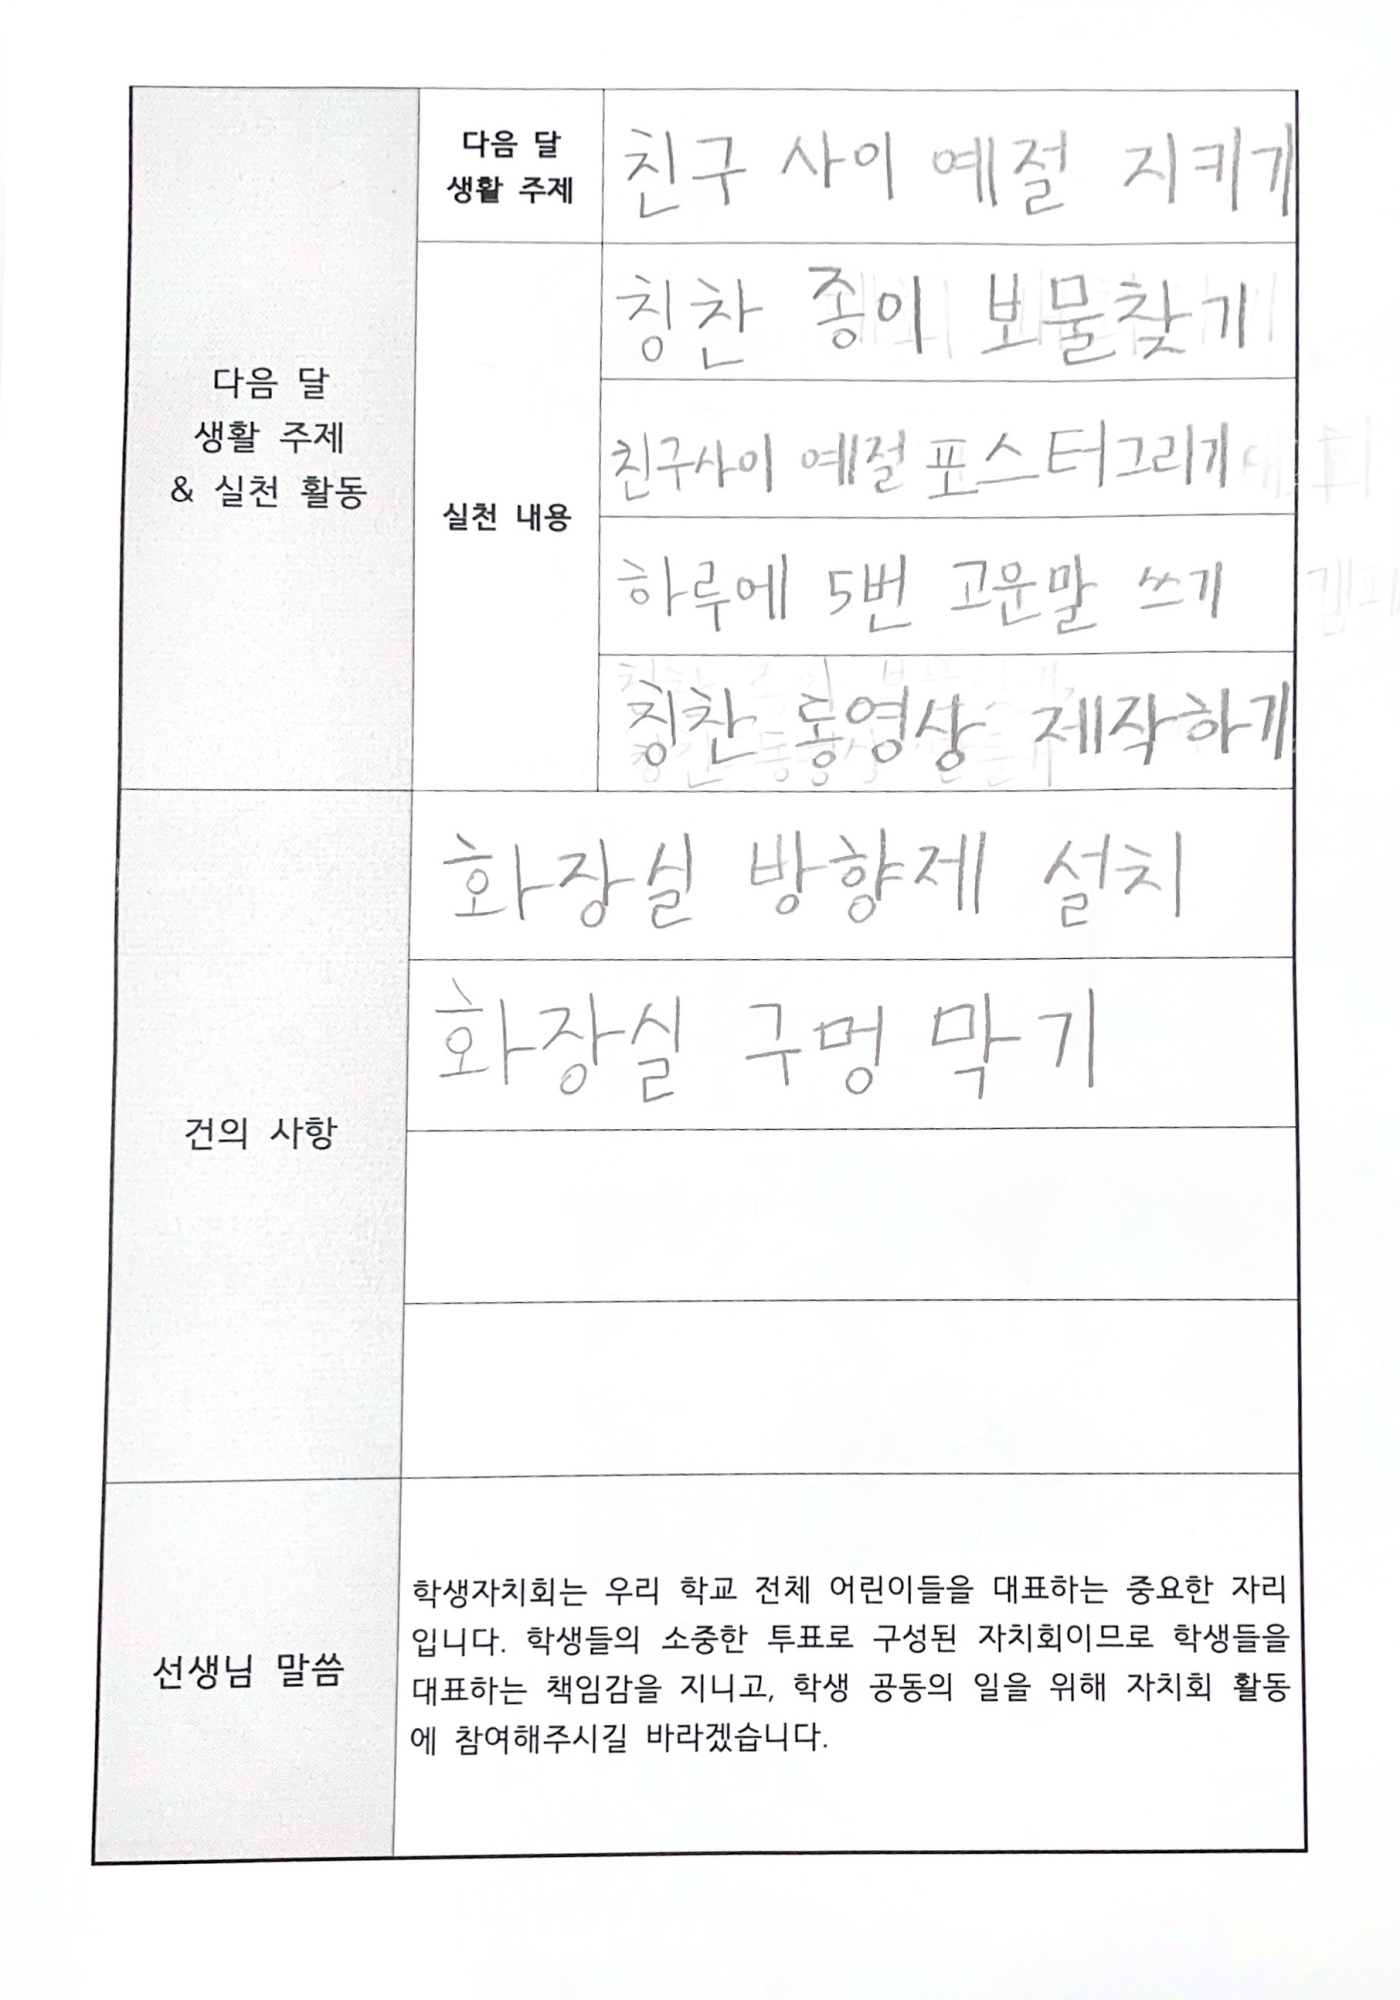 다음 달
생활 주제
친구 사이 예절 지키기
칭찬 종이 보물찾기
다음 달
생활 주제
& 실천 활동
친구사이 예절 포스터그리기
실천 내용
하루에 5번 고운말 쓰기
칭찬 동영상 제작하기
화장실 방향제 설치
화장실 구멍 막기
건의 사항
선생님 말씀
학생자치회는 우리 학교 전체 어린이들을 대표하는 중요한 자리
입니다. 학생들의 소중한 투표로 구성된 자치회이므로 학생들을
대표하는 책임감을 지니고, 학생 공동의 일을 위해 자치회 활동
에 참여해주시길 바라겠습니다.